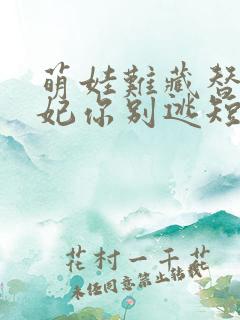 萌娃難藏替
妃你别逃短
花村一千花
未任同意禁止转载